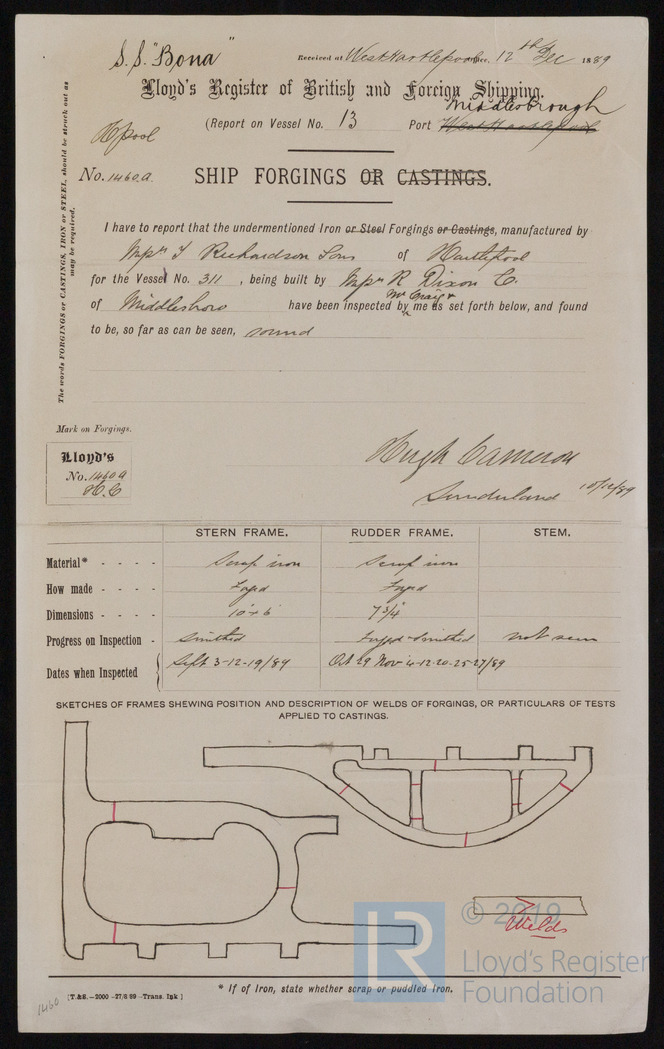 S.S. "Bona"
Received at West Hartlepool Office, 12th Dec 1889
Lloyd's Register of British and Foreign Shipping.
Middlesbrough
(Report on Vessel No. 13 Port West Hartlepool
Hpool
No. 1460a
SHIP FORGINGS OR CASTINGS.
The words FORGINGS or CASTINGS, IRON or STEEL, should be struck out as
may be required.
I have to report that the undermentioned Iron or Steel Forgings or Castings, manufactured by
T Richardson Sons of Hartlepool
for the Vessel No. 311, being built by R Dixon & Co.
Mr Craig &
of Middlesboro have been inspected by me as set forth below, and found
to be, so far as can be seen, sound
Mark on Forgings.
Lloyd's
No. 1460a
H.C
Hugh Cameron
Sunderland 10/12/89
STERN FRAME. RUDDER FRAME. STEM.
Material* - - - - Scrap iron Scrap iron
How made - - - - Forged Forged
Dimensions - - - - 10 x 6 7 3/4
Progress on Inspection - Smithed Forged & smithed not seen
Dates when Inspected Sept 3-12-19/89 Oct 29 Nov 4-12-20-25-27/89
SKETCHES OF FRAMES SHEWING POSITION AND DESCRIPTION OF WELDS OF FORGINGS, OR PARTICULARS OF TESTS
APPLIED TO CASTINGS.
Welds
© 2019
LR
Lloyd's Register
Foundation
* If of Iron, state whether scrap or puddled Iron.
[T.&S.-2000-27/8 89-Trans. Ink]
1460